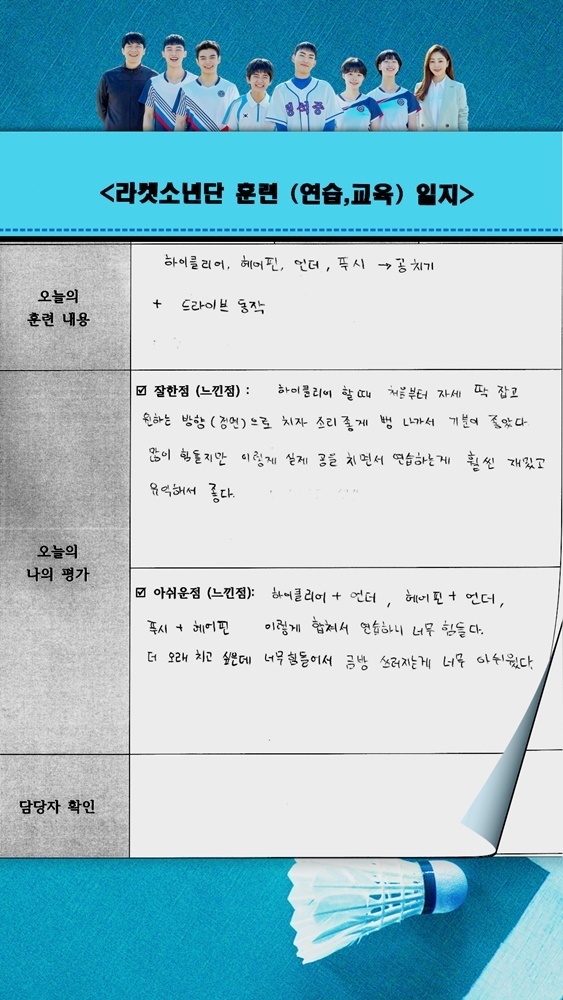 정석중
<라켓소년단 훈련 (연습,교육) 일지>
오늘의
훈련 내용
하이클리어, 헤어핀, 언더, 푸시 → 공치기
+ 드라이브 동작
오늘의
나의 평가
☑ 잘한점 (느낀점) : 하이클리어 할때 처음부터 자세 딱 잡고
원하는 방향(정면)으로 치자 소리좋게 뻥 나가서 기분이 좋았다
많이 힘들지만 이렇게 실제 공을 치면서 연습하는게 훨씬 재밌고
유익해서 좋다.
☑ 아쉬운점 (느낀점): 하이클리어 + 언더, 헤어핀 + 언더,
푸시 + 헤어핀 이렇게 합쳐서 연습하니 너무 힘들다.
더 오래 치고 싶은데 너무힘들어서 금방 쓰러지는게 너무 아쉬웠다.
담당자 확인